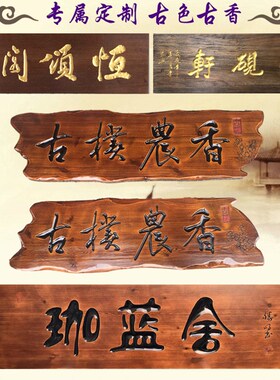 专属定制 古色古香
阁颂恒
軒硯
古樸農香
古樸農香
珈蓝舍